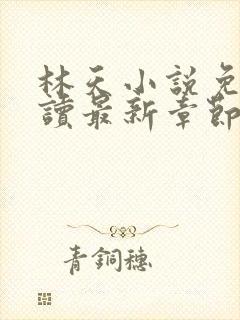 林天小說免
讀最新章節
青銅穗